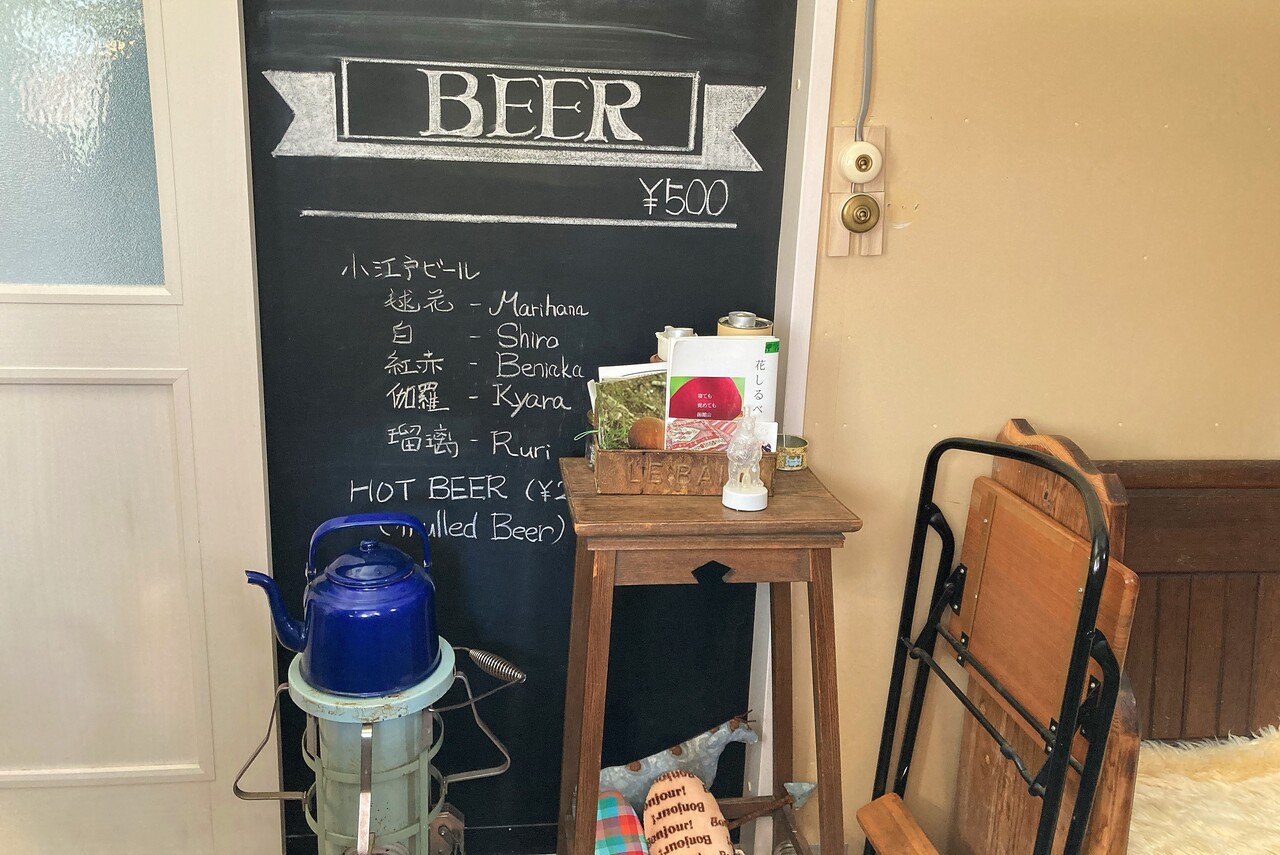 BEER
¥500
小江戸ビール
毬花 - Marihana
白 - Shiro
紅赤 - Beniaka
伽羅 - Kyara
瑠璃 - Ruri
HOT BEER (¥
(Mulled Beer)
花しるべ
寝ても
覚めても
LE BA
Bonjour!
Bonjour!
Bonjour!
Bonjour!